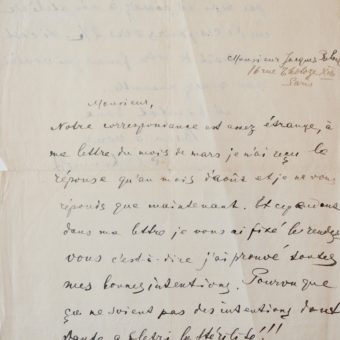 Monsieur Jacques
16 rue Tholozé
Paris
Monsieur,
Notre correspondance est assez étrange, à
ma lettre, du mois de mars je n'ai reçu la
réponse qu'au mois d'août et je ne vous
réponds que maintenant. Et cependant
dans ma lettre je vous ai fixé le rendez
vous c'est-à-dire j'ai prouvé toutes
mes bonnes intentions. Pourvu que
ça ne soient pas des intentions dont
la stérilité!!!